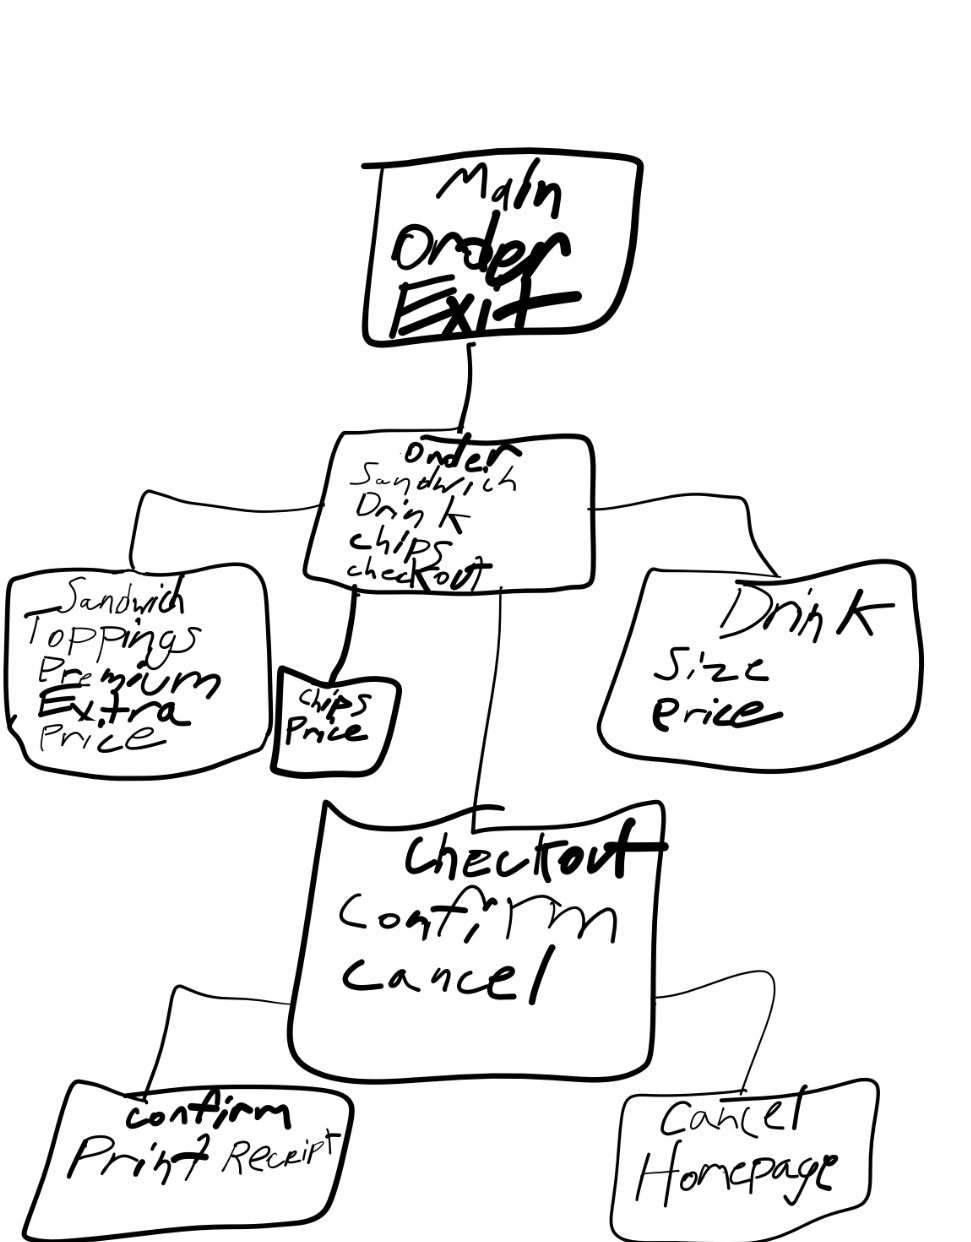 Main
Order
Exit
Order
Sandwich
Drink
chips
checkout
Sandwich
Toppings
Premium
Extra
Price
chips
Price
Drink
Size
Price
Checkout
Confirm
Cancel
Confirm
Print Receipt
Cancel
Homepage